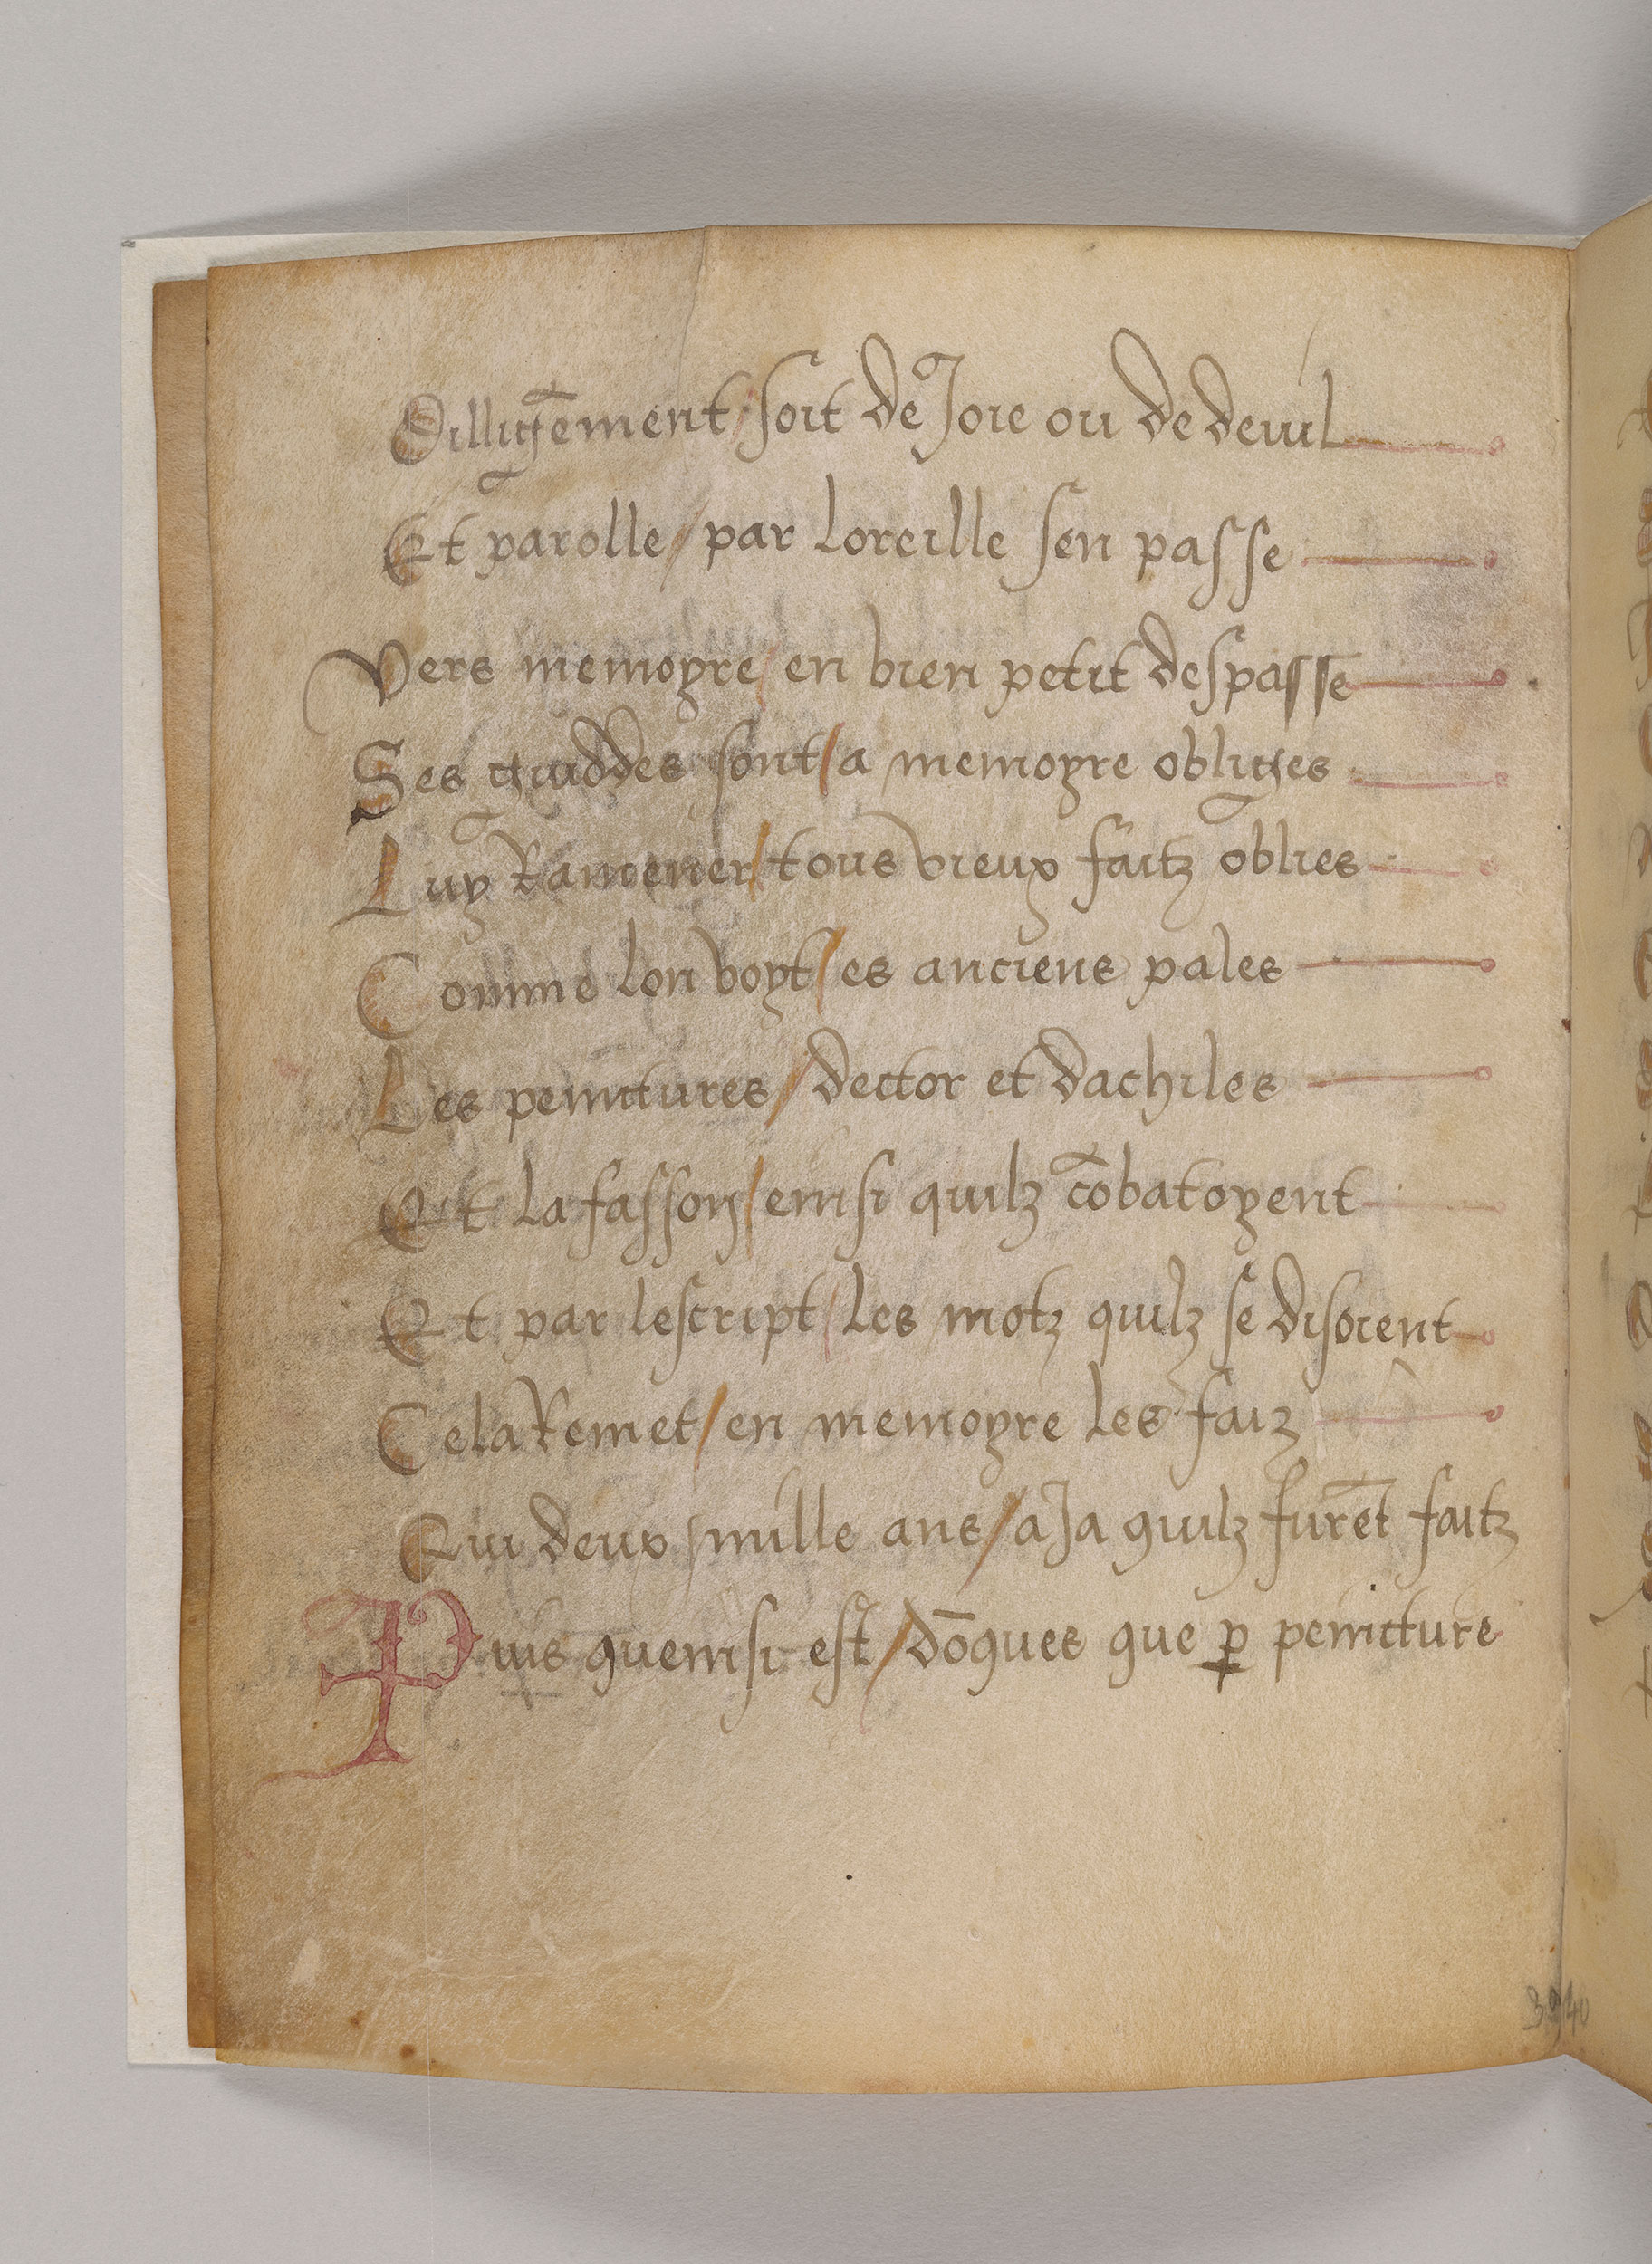 Dilligēment / soit de Joie ou de deuil
Et parolle / par loreille sen passe
Vers memoyre / en bien petit despasse
Ses guiddes sont / a memoyre obliges
Luy Ramener / tous vieux faitz oblies
Comme lon voyt / es anciens pales
Les peinctures / dector et dachiles
Et la fasson / einsi quilz cōbatoyent
Et par lescript / les motz quilz se disoient
Cela Remet / en memoyre les faiz
Qui deux / mille ans / a Ja quilz furēt faitz
Puis queinsi est / dōques que ꝑ peincture